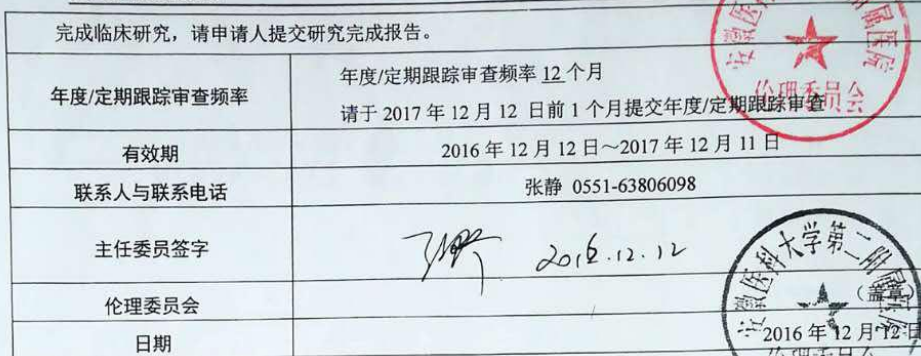 完成临床研究，请申请人提交研究完成报告。
年度/定期跟踪审查频率
年度/定期跟踪审查频率 12 个月
请于 2017 年 12 月 12 日前 1 个月提交年度/定期跟踪审查
有效期
2016 年 12 月 12 日～2017 年 12 月 11 日
联系人与联系电话
张静 0551-63806098
主任委员签字
2016.12.12
伦理委员会
（盖章）
日期
2016 年 12 月 12 日
安徽医科
附属医院
伦理委员会
安徽医科大学第二附属医院
伦理委员会